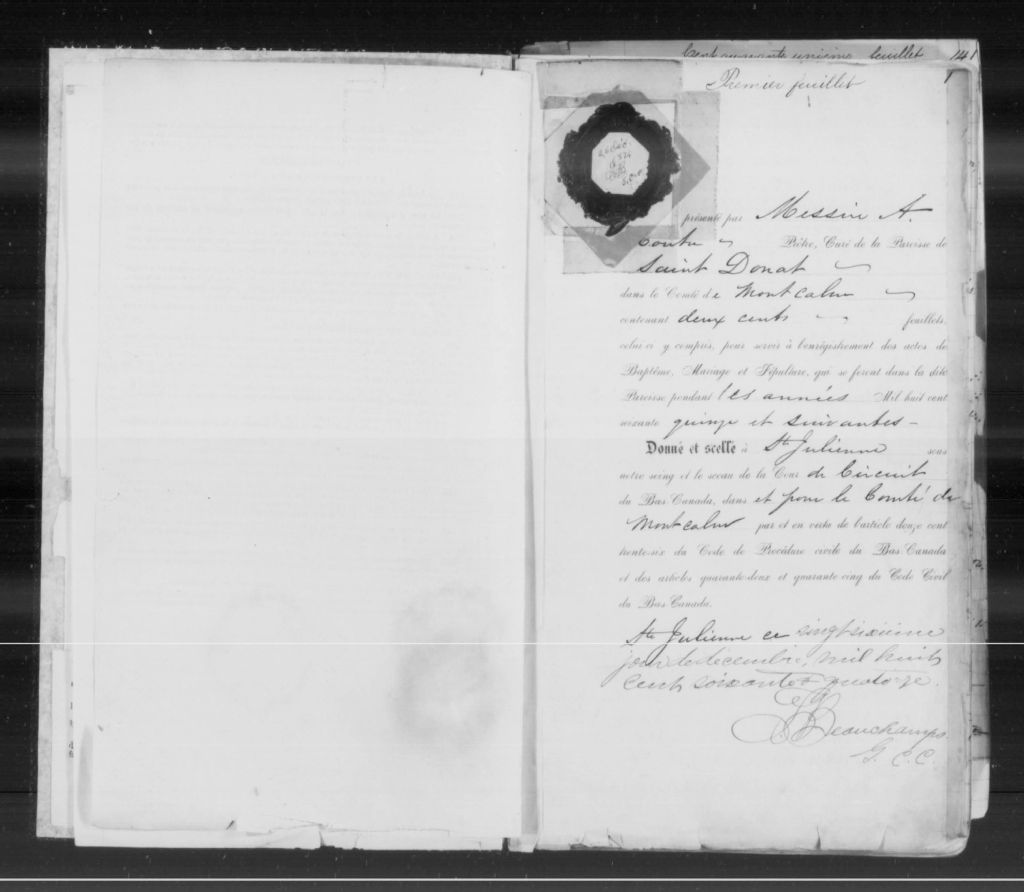 Cent quarante unième feuillet 141
1
Premier feuillet
présenté par Messire A.
Coutu Prêtre, Curé de la Paroisse de
Saint Donat
dans le Comté de Montcalm
contenant deux cents feuillets,
celui-ci y compris, pour servir à l'enrégistrement des actes de
Baptême, Mariage et Sépulture, qui se feront dans la dite
Paroisse pendant les années Mil huit cent
soixante quinze et suivantes -
Donné et scellé à Ste Julienne sous
notre seing et le sceau de la Cour de Circuit
du Bas-Canada, dans et pour le Comté de
Montcalm par et en vertu de l'article douze cent
trente-six du Code de Procédure civile du Bas-Canada
et des articles quarante-deux et quarante-cinq du Code Civil
du Bas-Canada.
Ste Julienne ce vingt sixième
jour de décembre, mil huit
cent soixante & quatorze.
Beauchamps
G. C. C.